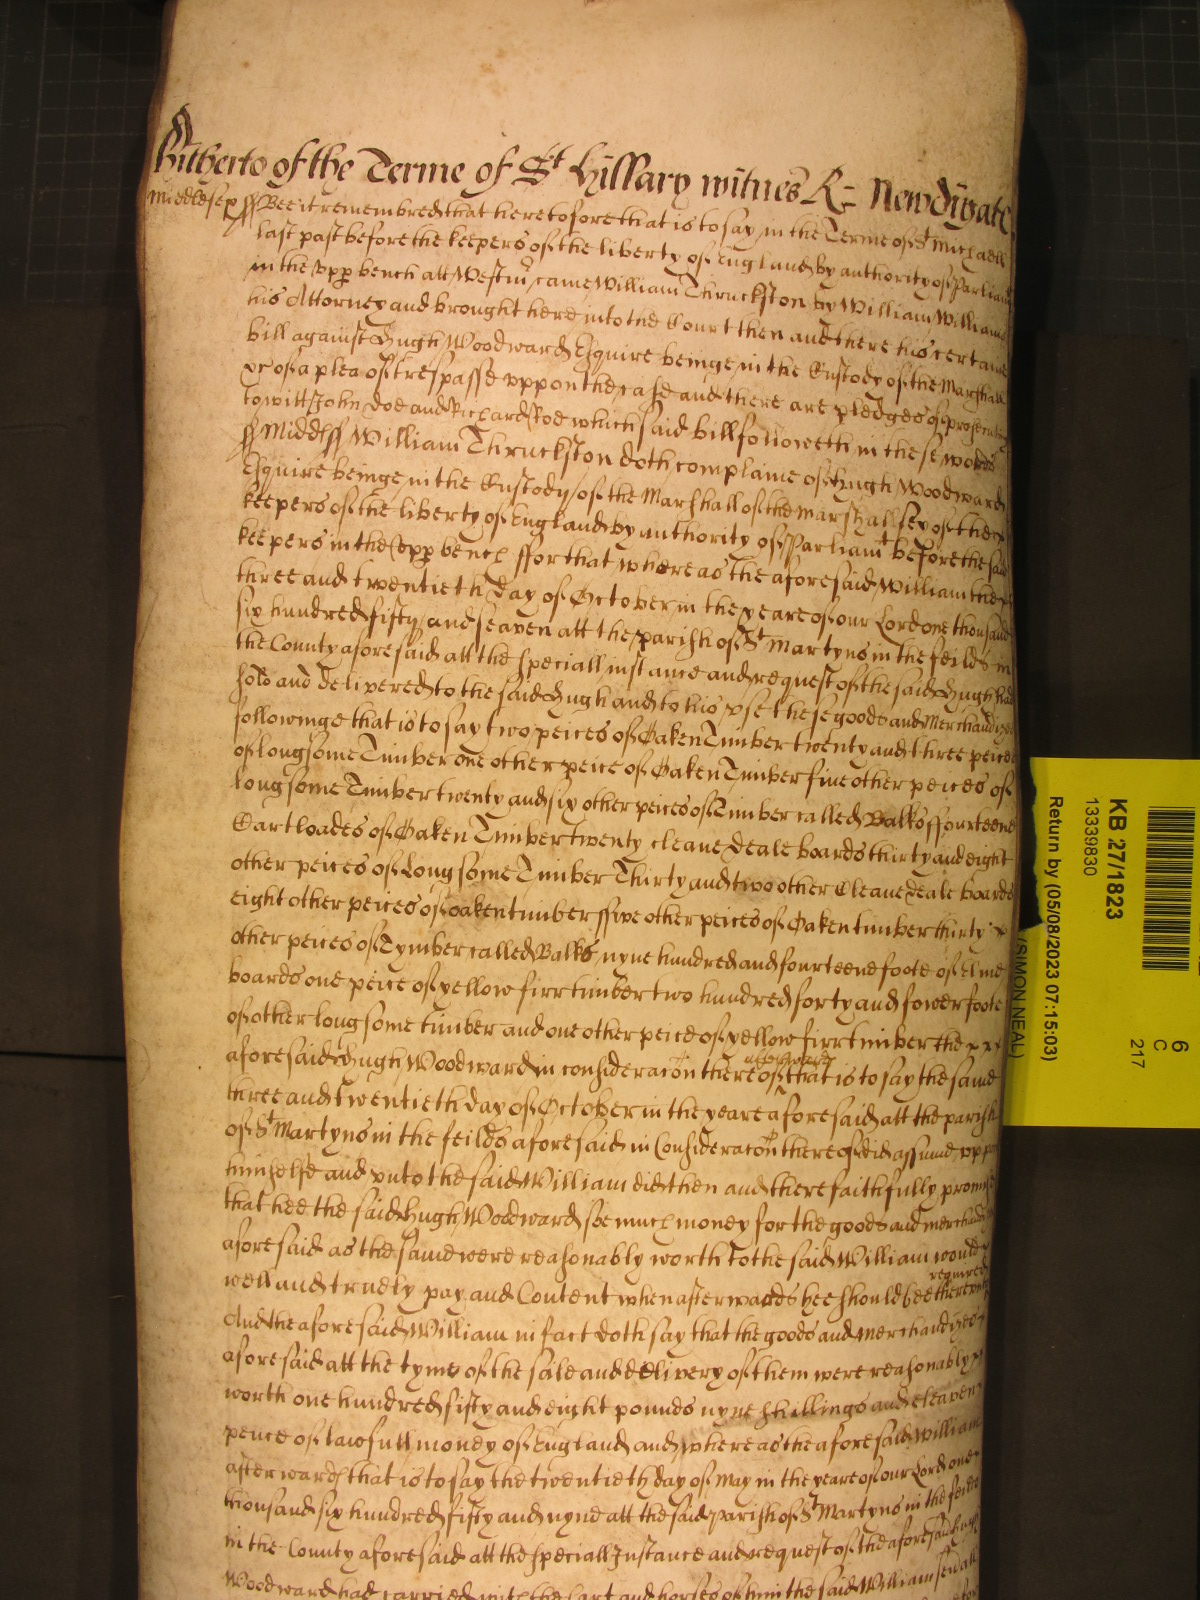 Hitherto of the Terme of St Hillary witnes R= Newdigate
Middlesex ss Bee it remembred that heretofore that is to say in the Terme of St Michaell
last past before the keepers of the liberty of England by authority of Parliamt
in the Vpp bench att Westmr came William Thruckston by William Williams
his Attorney and brought here into the Court then and there his certaine
bill against Hugh Woodward Esquire beinge in the Custody of the Marshall
&c of a plea of trespasse vppon the case and there are pledges of prosecuting
to witt John Doe and Richard Roe which said bill followeth in these words
ss Middss William Thruckston doth complaine of Hugh Woodward
Esquire beinge in the Custody of the Marshall of the Marshallsey of the
keepers of the liberty of England by authority of Parliamt before the said
keepers in the Vpp bench ffor that whereas the aforesaid William the
three and twentieth day of October in the yeare of our Lord one thousand
six hundred fifty and seaven att the parish of St Martyns in the feilds in
the County aforesaid att the speciall instance and request of the said Hugh had
sold and delivered to the said Hugh and to his vse these goods and Merchandizes
followinge that is to say two peices of Oaken Timber twenty and three peices
of longsome Timber one other peice of Oaken Timber five other peices of
longsome Timber twenty and six other peices of Timber called Balks ffourteene
Cartloades of Oaken Timber twenty cleane deale boards thirty and eight
other peices of Longsome Timber Thirty and two other Cleane deale boards
eight other peices of oaken timber ffive other peices of Oaken timber thirty
other peices of Tymber called Balks nyne hundred and fourteene foote of Elme
boards one peice of yellow firr timber two hundred forty and fower foote
of other longsome timber and one other peice of yellow firr timber the
aforesaid Hugh Woodward in consideracon thereof afterwards that is to say the same
three and twentieth day of October in the yeare aforesaid att the parish
of St Martyns in the feilds aforesaid in Consideracon thereof did assume vppon
himselfe and vnto the said William did then and there faithfully promise
that hee the said Hugh Woodward soe much money for the goods and merchandizes
aforesaid as the same were reasonably worth to the said William would
well and truely pay and Content when afterwards hee should bee thereunto required
And the aforesaid William in fact doth say that the goods and Merchandizes
aforesaid att the tyme of the sale and delivery of them were reasonably
worth one hundred fifty and eight pounds nyne shillings and eleaven
pence of lawfull money of England and whereas the aforesaid William
afterward that is to say the twentieth day of May in the yeare of our Lord one
thousand six hundred fifty and nyne att the said parish of St Martyns in the feilds
in the County aforesaid att the speciall Instance and request of the aforesaid Hugh
Woodward had carried with the cart and horses of him the said William
KB 27/1823
13339830
Return by (05/08/2023 07:15:03)
(SIMON NEAL)
6
C
217